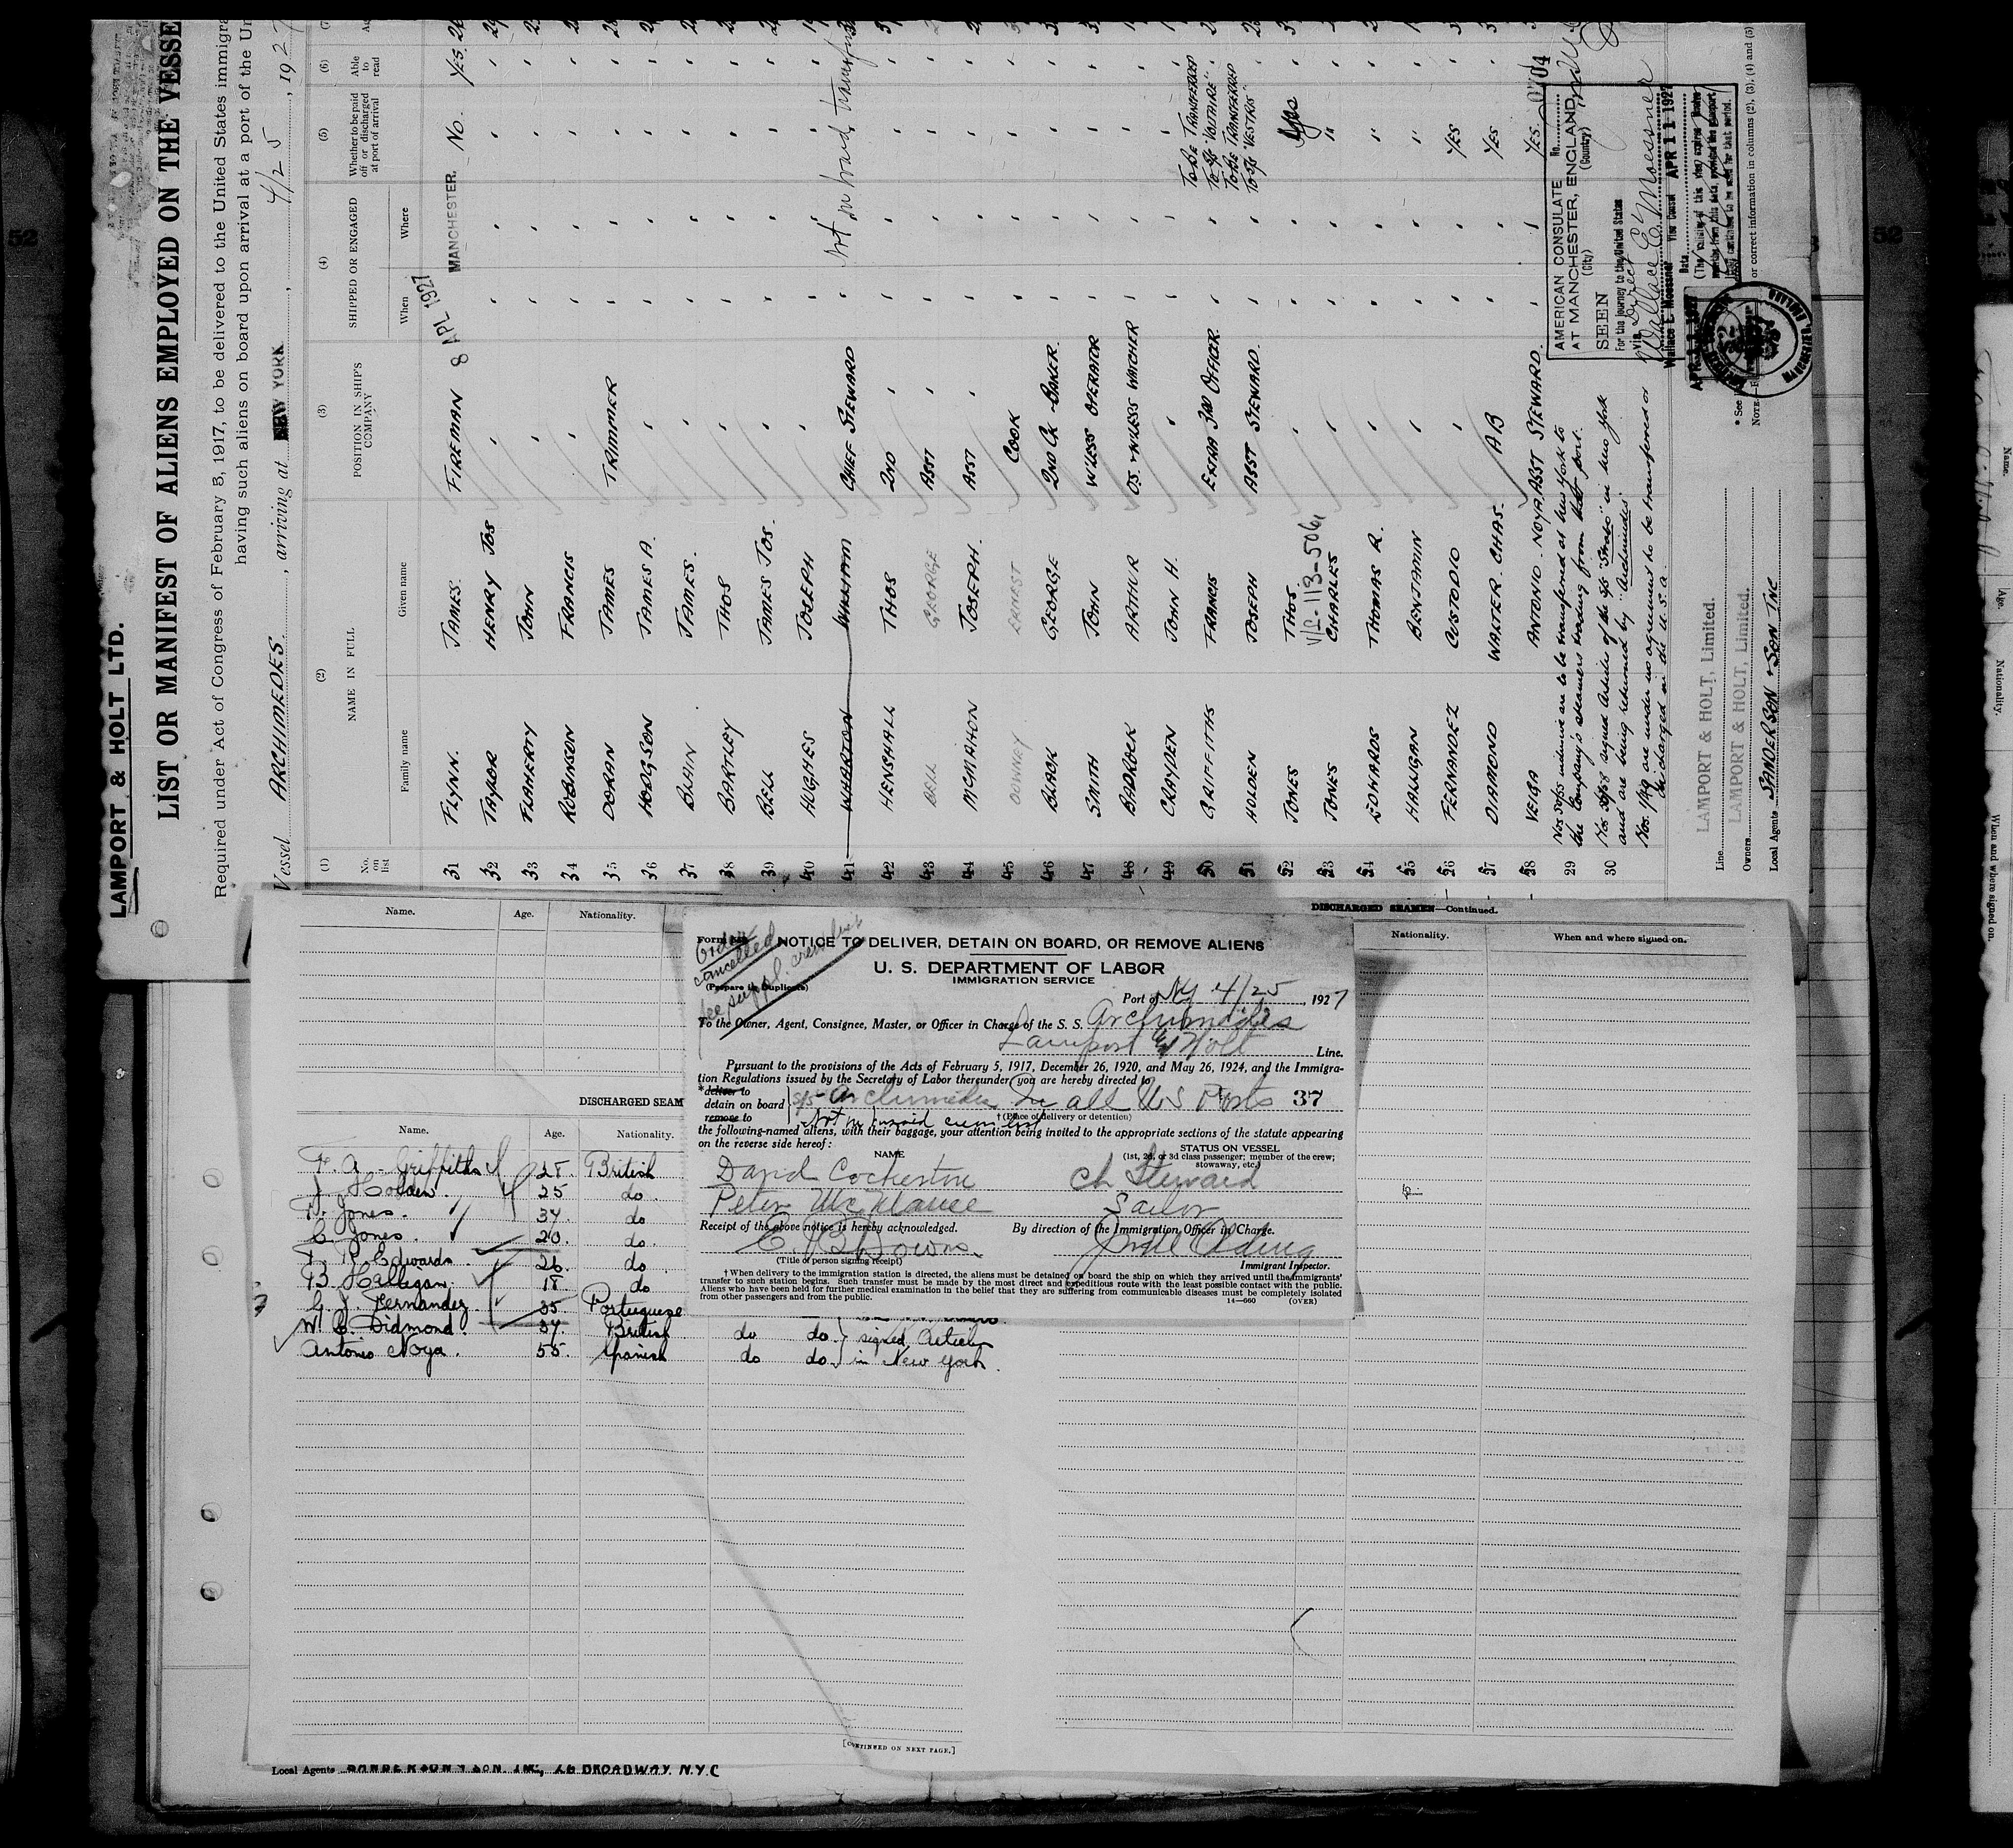 LAMPORT & HOLT LTD.
LIST OR MANIFEST OF ALIENS EMPLOYED ON THE VESSE
Required under Act of Congress of February 5, 1917, to be delivered to the United States immigra
having such aliens on board upon arrival at a port of the Un
Vessel ARCHIMEDES., arriving at NEW YORK, 4/25, 1927
(1) (2) (3) (4) (5) (6)
No. on list NAME IN FULL POSITION IN SHIP'S COMPANY SHIPPED OR ENGAGED Whether to be paid off or discharged at port of arrival Able to read
Family name Given name When Where
31 FLYNN. JAMES. FIREMAN 8 APL 1927 MANCHESTER. NO. YES.
32 TAYLOR HENRY JOS
33 FLAHERTY JOHN
34 ROBINSON FRANCIS
35 DORAN JAMES TRIMMER
36 HODGSON JAMES A.
37 BLAIN JAMES.
38 BARTLEY THOS
39 BELL JAMES JOS.
40 HUGHES JOSEPH
41 WHARTON WILLIAM CHIEF STEWARD Not on board
42 HENSHALL THOS 2ND
43 BELL GEORGE ASST
44 MCMAHON JOSEPH. ASST
45 DOWNEY ERNEST COOK
46 BLACK GEORGE 2ND CK & BAKER.
47 SMITH JOHN W'LESS OPERATOR
48 BADROCK ARTHUR OS. & W'LESS WATCHER
49 CRAYDEN JOHN H.
50 GRIFFITHS FRANCIS EXTRA 3RD OFFICER. TO BE TRANSFERRED TO S/S "VOLTAIRE".
51 HOLDEN JOSEPH ASST STEWARD. TO BE TRANSFERRED TO S/S "VESTRIS"
52 JONES THOS Yes
V/L-113-506
53 JONES CHARLES "
54 EDWARDS THOMAS R. "
55 HALLIGAN BENJAMIN "
56 FERNANDEZ CUSTODIO YES
57 DIAMOND WALTER CHAS. AB YES
58 VEIGA ANTONIO NOYA ASST STEWARD. YES.
29 Nos 50/55 inclusive are to be transferred at New York to
the Company's steamers trading from that port.
30 Nos 56/58 signed Articles of the s/s "Strabo" in New York
and are being returned by "Archimedes"
Nos. 1/49 are under no agreement to be transferred or
discharged in the U.S.A.
AMERICAN CONSULATE
AT MANCHESTER, ENGLAND
(City) (Country)
No.
SEEN
For the journey to the United States
Via Direct
Wallace E. Moessner
Wallace E. Moessner Vice Consul APR 11 1927
Date
Line LAMPORT & HOLT, Limited.
Owners LAMPORT & HOLT, Limited.
Local Agents SANDERSON & SON INC
or correct information in columns (2), (3), (4) and (5)
52
52
Name. Age. Nationality.
DISCHARGED SEAMEN—Continued.
Nationality. When and where signed on.
Order cancelled
See suppl. crew list
NOTICE TO DELIVER, DETAIN ON BOARD, OR REMOVE ALIENS
U. S. DEPARTMENT OF LABOR
IMMIGRATION SERVICE
(Prepare in Duplicate)
Port of NY 4/25, 1927
To the Owner, Agent, Consignee, Master, or Officer in Charge of the S. S. Archimedes
Lamport & Holt Line.
Pursuant to the provisions of the Acts of February 5, 1917, December 26, 1920, and May 26, 1924, and the Immigra-
tion Regulations issued by the Secretary of Labor thereunder you are hereby directed to
*deliver to
detain on board S/S - Archimedes In all US Ports 37
remove to †(Place of delivery or detention)
Not on visaed crew list
the following-named aliens, with their baggage, your attention being invited to the appropriate sections of the statute appearing
on the reverse side hereof:
NAME STATUS ON VESSEL
(1st, 2d, or 3d class passenger; member of the crew; stowaway, etc.)
David Ch Steward
Peter Sailor
Receipt of the above notice is hereby acknowledged. By direction of the Immigration Officer in Charge.
(Title of person signing receipt) Immigrant Inspector.
†When delivery to the immigration station is directed, the aliens must be detained on board the ship on which they arrived until the immigrants'
transfer to such station begins. Such transfer must be made by the most direct and expeditious route with the least possible contact with the public.
Aliens who have been held for further medical examination in the belief that they are suffering from communicable diseases must be completely isolated
from other passengers and from the public. 14—660 (OVER)
DISCHARGED SEAM
Name. Age. Nationality.
F. A. Griffiths 28. British
J. Holden. 25 do.
T. Jones. 34. do
C. Jones. 20. do.
T. R. Edwards 26. do.
B. Halligan. 18 do
C. J. Fernandez 35 Portuguese
W. C. Diamond. 34. British do do. signed Articles
Antonio Noya. 55. Spanish do do. in New York.
[CONTINUED ON NEXT PAGE.]
Local Agents SANDERSON & SON. INC, 26 BROADWAY. N.Y.C
Name.
Age.
Nationality.
When and where signed on.